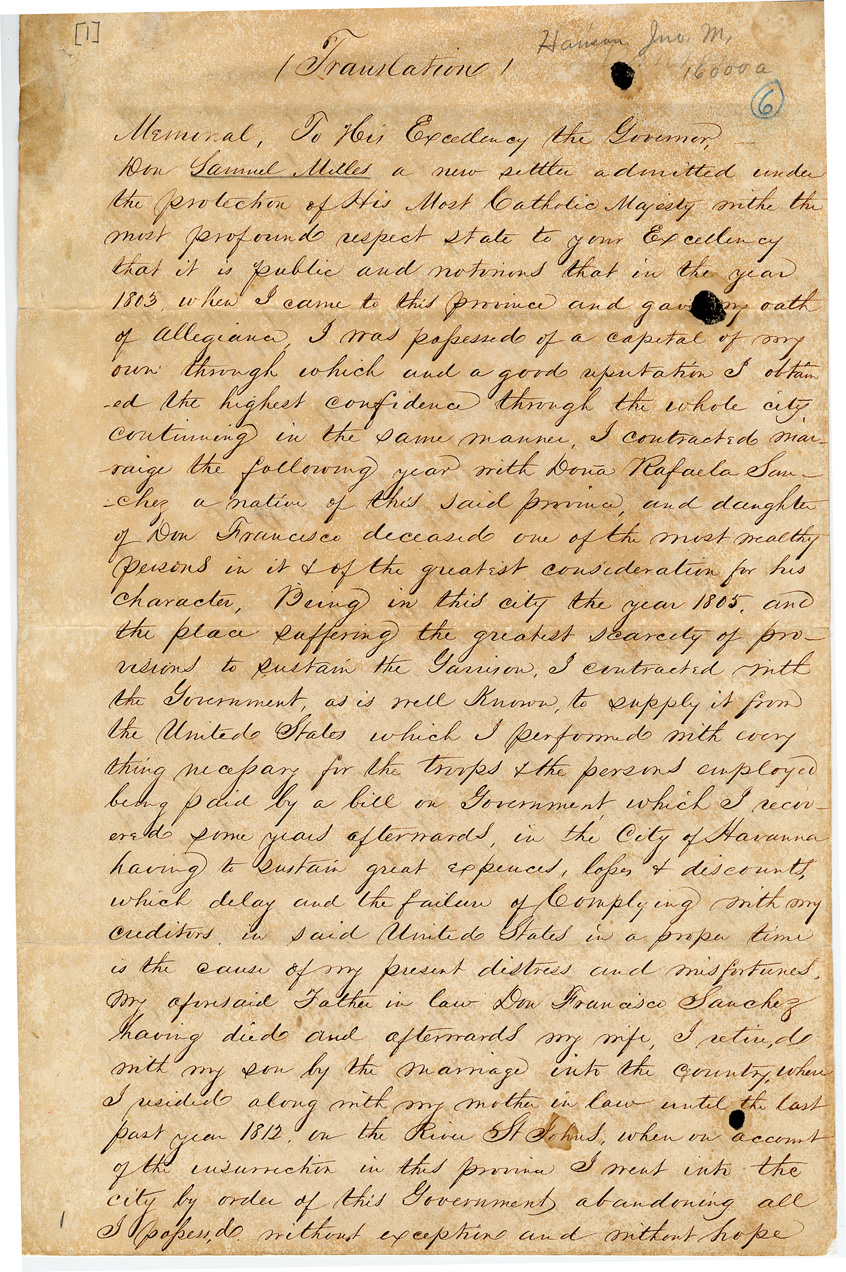 [1]
Hanson, Jno. M.
16000a
6
(Translation)
Memorial, To His Excellency the Governor,
Don Samuel Miller a new settler admitted under
the protection of His Most Catholic Majesty withe the
most profound respect state to your Excellency
that it is public and notorious that in the year
1803, when I came to this province and gave my oath
of Allegiance, I was possessed of a capital of my
own through which and a good reputation I obtain
-ed the highest confidence through the whole city,
continuing in the same manner, I contracted mar-
raige the following year with Dona Rafaela San-
-chez a native of this said province, and daughter
of Don Francisco deceased one of the most wealthy
persons in it & of the greatest consideration for his
character, Being in this city the year 1805, and
the place suffering the greatest scarcity of pro-
visions to sustain the Garrison, I contracted with
the Government, as is well Known, to supply it from
the United States which I performed with every
thing necessary for the troops & the persons employed
being paid by a bill on Government, which I recov-
ered some years afterwards, in the City of Havanna
having to sustain great expences, losses & discounts,
which delay and the failure of Complying with my
creditors in said United States in a proper time
is the cause of my present distress and misfortunes.
My aforesaid Father in law Don Francisco Sanchez
having died and afterwards my wife, I retire,d
with my son by the marriage into the country, where
I resided along with my mother in law until the last
past year 1812, on the River St Johns, when on account
of the insurrection in this province I went into the
city by order of this Government, abandoning all
I possess,d without exception and without hope